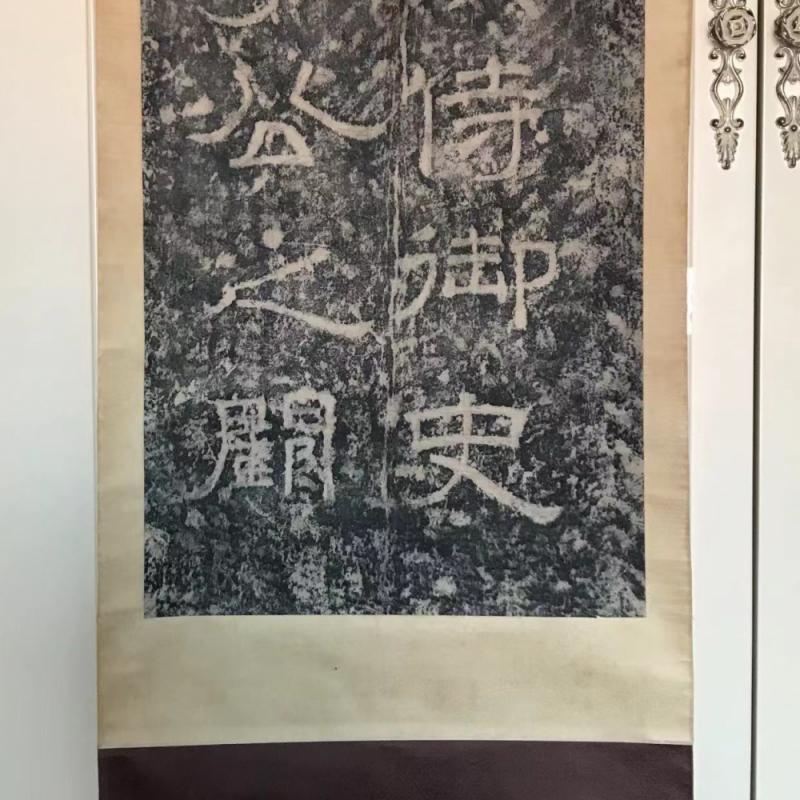 侍御史
公之闕